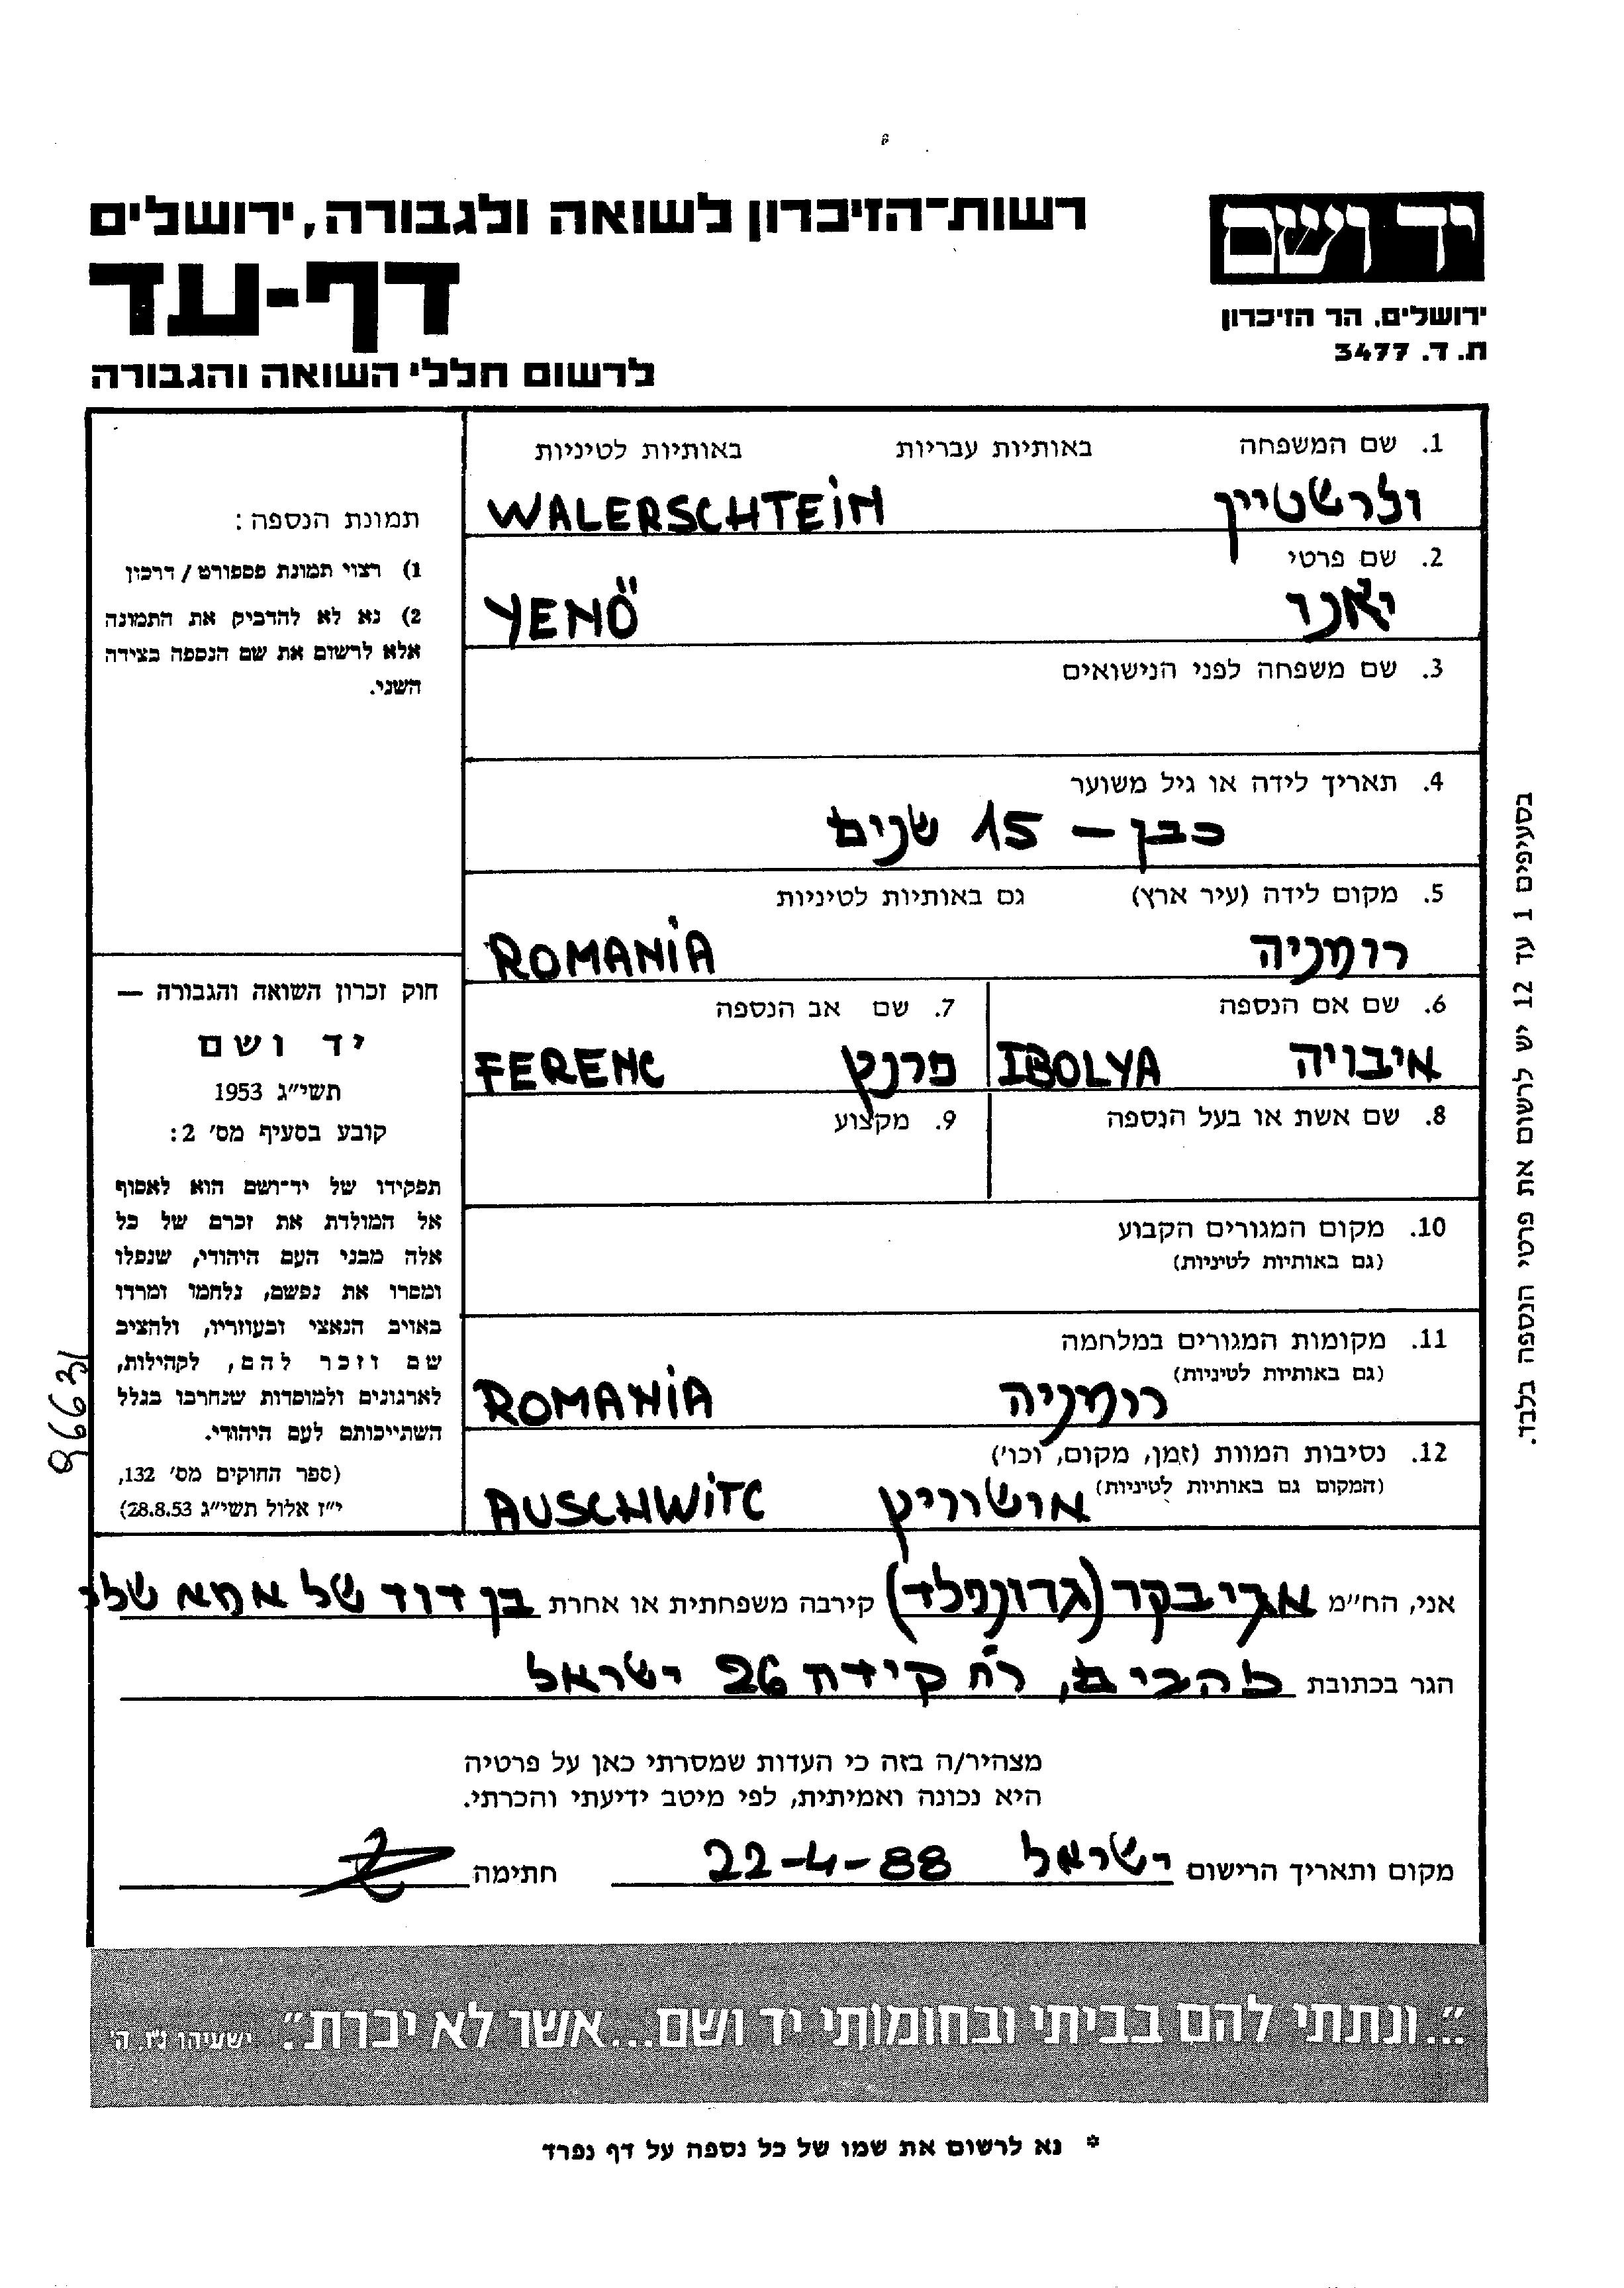 יד ושם
ירושלים, הר הזיכרון
ת. ד. 3477
רשות-הזיכרון לשואה ולגבורה, ירושלים
דף-עד
לרשום חללי השואה והגבורה
1. שם המשפחה באותיות עבריות באותיות לטיניות
ולרשטיין WALERSCHTEIN
2. שם פרטי
יאנו YENÖ
3. שם משפחה לפני הנישואים
4. תאריך לידה או גיל משוער
כבן – 15 שנים
5. מקום לידה (עיר ארץ) גם באותיות לטיניות
רומניה ROMANIA
6. שם אם הנספה 7. שם אב הנספה
איבויה IBOLYA פרנץ FERENC
8. שם אשת או בעל הנספה 9. מקצוע
10. מקום המגורים הקבוע
(גם באותיות לטיניות)
11. מקומות המגורים במלחמה
(גם באותיות לטיניות)
רומניה ROMANIA
12. נסיבות המוות (זמן, מקום, וכו')
(המקום גם באותיות לטיניות)
אושוויץ AUSCHWITC
תמונת הנספה:
1) רצוי תמונת פספורט / דרכון
2) נא לא להדביק את התמונה
אלא לרשום את שם הנספה בצידה
השני.
חוק זכרון השואה והגבורה —
יד ושם
תשי"ג 1953
קובע בסעיף מס' 2:
תפקידו של יד-ושם הוא לאסוף
אל המולדת את זכרם של כל
אלה מבני העם היהודי, שנפלו
ומסרו את נפשם, נלחמו ומרדו
באויב הנאצי ובעוזריו, ולהציב
שם וזכר להם, לקהילות,
לארגונים ולמוסדות שנחרבו בגלל
השתייכותם לעם היהודי.
(ספר החוקים מס' 132,
י"ז אלול תשי"ג 28.8.53)
בסעיפים 1 עד 12 יש לרשום את פרטי הנספה בלבד.
אני, הח"מ אבי בקר (גרונפלד) קירבה משפחתית או אחרת בן דוד של אמא שלי
הגר בכתובת להבים, רח קידה 26 ישראל
מצהיר/ה בזה כי העדות שמסרתי כאן על פרטיה
היא נכונה ואמיתית, לפי מיטב ידיעתי והכרתי.
מקום ותאריך הרישום ישראל 22-4-88 חתימה
"...ונתתי להם בביתי ובחומותי יד ושם...אשר לא יכרת". ישעיהו נ"ו, ה'
* נא לרשום את שמו של כל נספה על דף נפרד